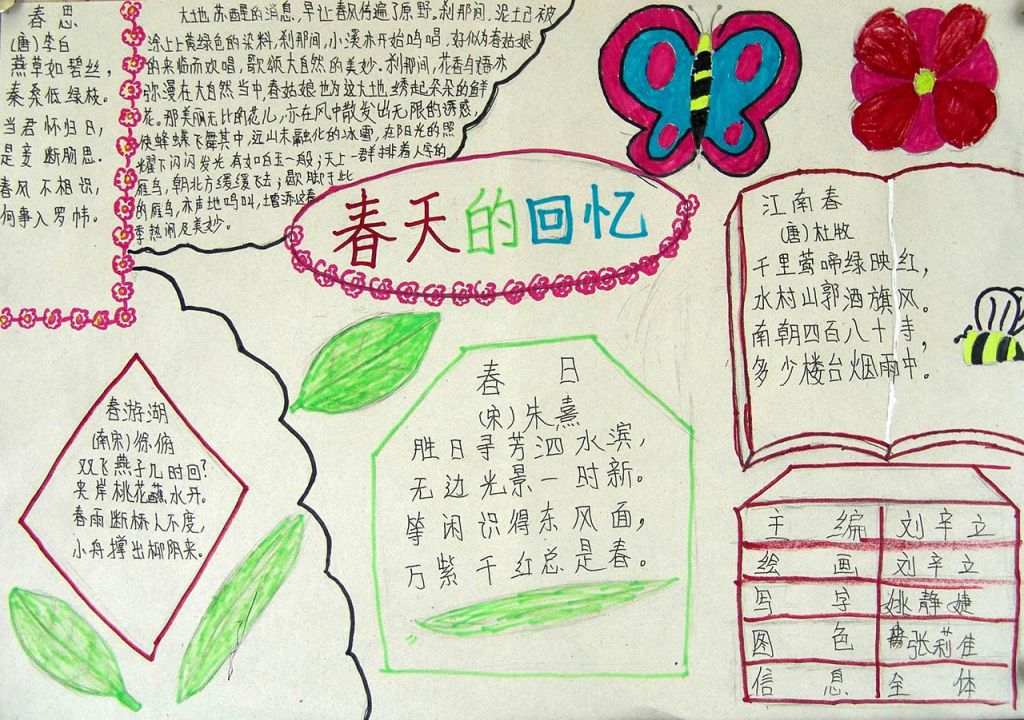 春思
(唐)李白
燕草如碧丝,
秦桑低绿枝。
当君怀归日,
是妾断肠思。
春风不相识,
何事入罗帏。
大地苏醒的消息,早让春风传遍了原野。刹那间,泥土已被
涂上上黄绿色的染料,刹那间,小溪亦开始鸣唱,好似为春姑娘
的来临而欢唱,歌颂大自然的美妙。刹那间,花香鸟语亦
弥漫在大自然当中,春姑娘也为这大地绣起朵朵的鲜
花。那美丽无比的花儿,亦在风中散发出无限的诱惑,
使蜂蝶飞舞其中,远山未融化的冰雪,在阳光的照
耀下闪闪发光有如白玉一般;天上一群排着人字的
雁鸟,朝北方缓缓飞去;歇脚于此
的雁鸟,亦声地鸣叫,增添这春
季热闹及美妙。
春天的回忆
江南春
(唐)杜牧
千里莺啼绿映红,
水村山郭酒旗风。
南朝四百八十寺,
多少楼台烟雨中。
春游湖
(南宋)徐俯
双飞燕子几时回?
夹岸桃花蘸水开。
春雨断桥人不度,
小舟撑出柳阴来。
春日
(宋)朱熹
胜日寻芳泗水滨,
无边光景一时新。
等闲识得东风面,
万紫千红总是春。
主编 刘辛立
绘画 刘辛立
写字 姚静婕
图色 张莉佳
信息 全体